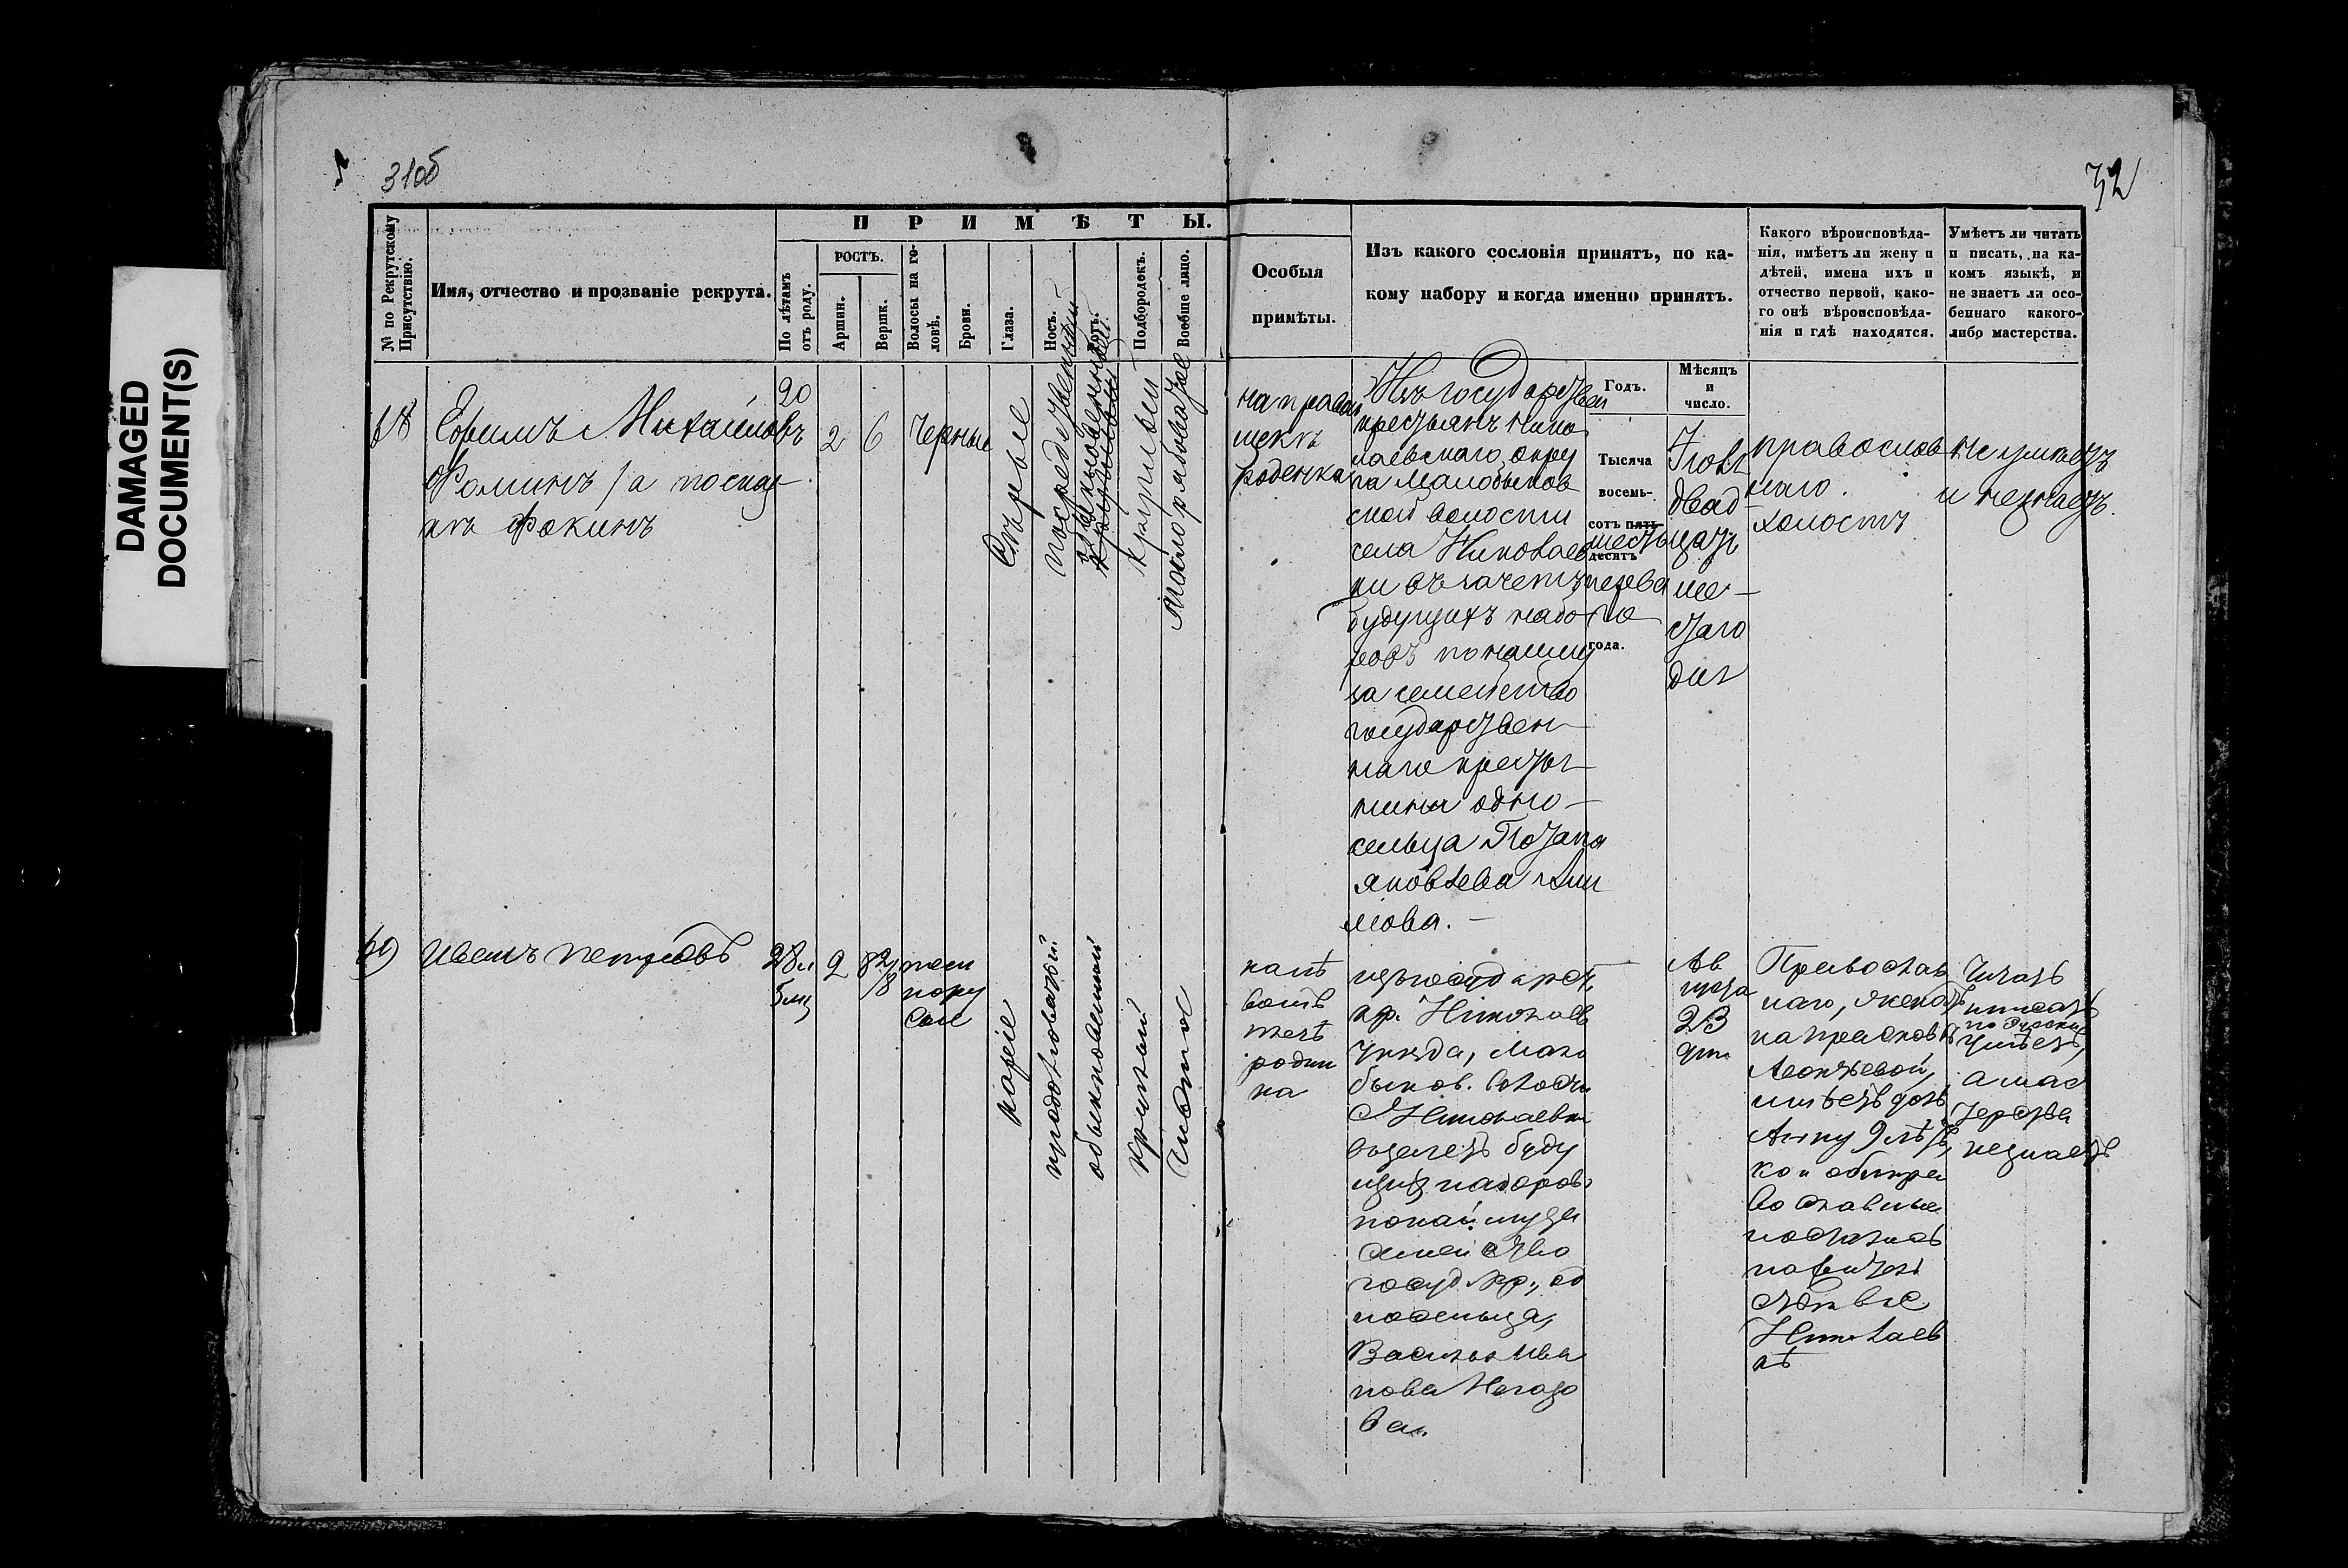 DAMAGED
DOCUMENT(S)
31об
32
ПРИМѢТЫ.
№ по Рекрутскому
Присутствію.
Имя, отчество и прозваніе рекрута.
По лѣтамъ
отъ роду.
РОСТЪ.
Аршин.
Вершк.
Волосы на го-
ловѣ.
Брови.
Глаза.
Носъ.
Ротъ.
Подбородокъ.
Вообще лицо.
Особыя
примѣты.
Изъ какого сословія принятъ, по ка-
кому набору и когда именно принятъ.
Годъ.
Мѣсяцъ
и
число.
Какого вѣроисповѣда-
нія, имѣетъ ли жену и
дѣтей, имена ихъ и
отчество первой, како-
го онѣ вѣроисповѣда-
нія и гдѣ находятся.
Умѣетъ ли читать
и писать, на ка-
комъ языкѣ, и
не знаетъ ли осо-
беннаго какого-
либо мастерства.
Ефимъ Михайловъ
Фоминъ / а по
Фокинъ
20
2
6
Черные
Сѣрые
посредственный
обыкновенный
круглый
малорябоватое
на правой
щекѣ
роденка
Изъ государствен
крестьянъ Нико
лаевскаго окру
га Малобыков
ской волости
села Николаев
ки въ зачетъ
будущихъ набо
ровъ по найму
за семейство
государствен
наго крестья
нина одно-
сельца Потапа
Яковлева
мова.
Тысяча
восемь-
сотъ пять
десятъ
шесть
перва
го
года.
Іюля
двад
цать
ше-
стаго
дня
православ
наго.
холостъ
не умѣетъ
и не знаетъ.
69
Иванъ Петровъ
28 л
5 мц
2
8 2/8
тем
нору
сые
каріе
продолговатый
обыкновенный
круглый
чистое
на лѣ
вомъ
плечѣ
родин
ка
изъ государст,
кр. Николаев
уѣзда, Мало
быков. волости
с Николаевки
въ зачетъ буду
щихъ наборовъ
по найму за
семейство
госуд. кр., од
носельца,
Василья Ива
нова
ва.
Ав
густа
23
дня
Православ
наго, женатъ
на Прасковьѣ
Леонтьевой,
имѣетъ дочь
Анну 9 лѣтъ,
кои обѣ пра
вославные
остались
на жител
ствѣ въ с.
Николаев
кѣ
Читать
и писать
по русски
умѣетъ,
а мас
терства
незнаетъ